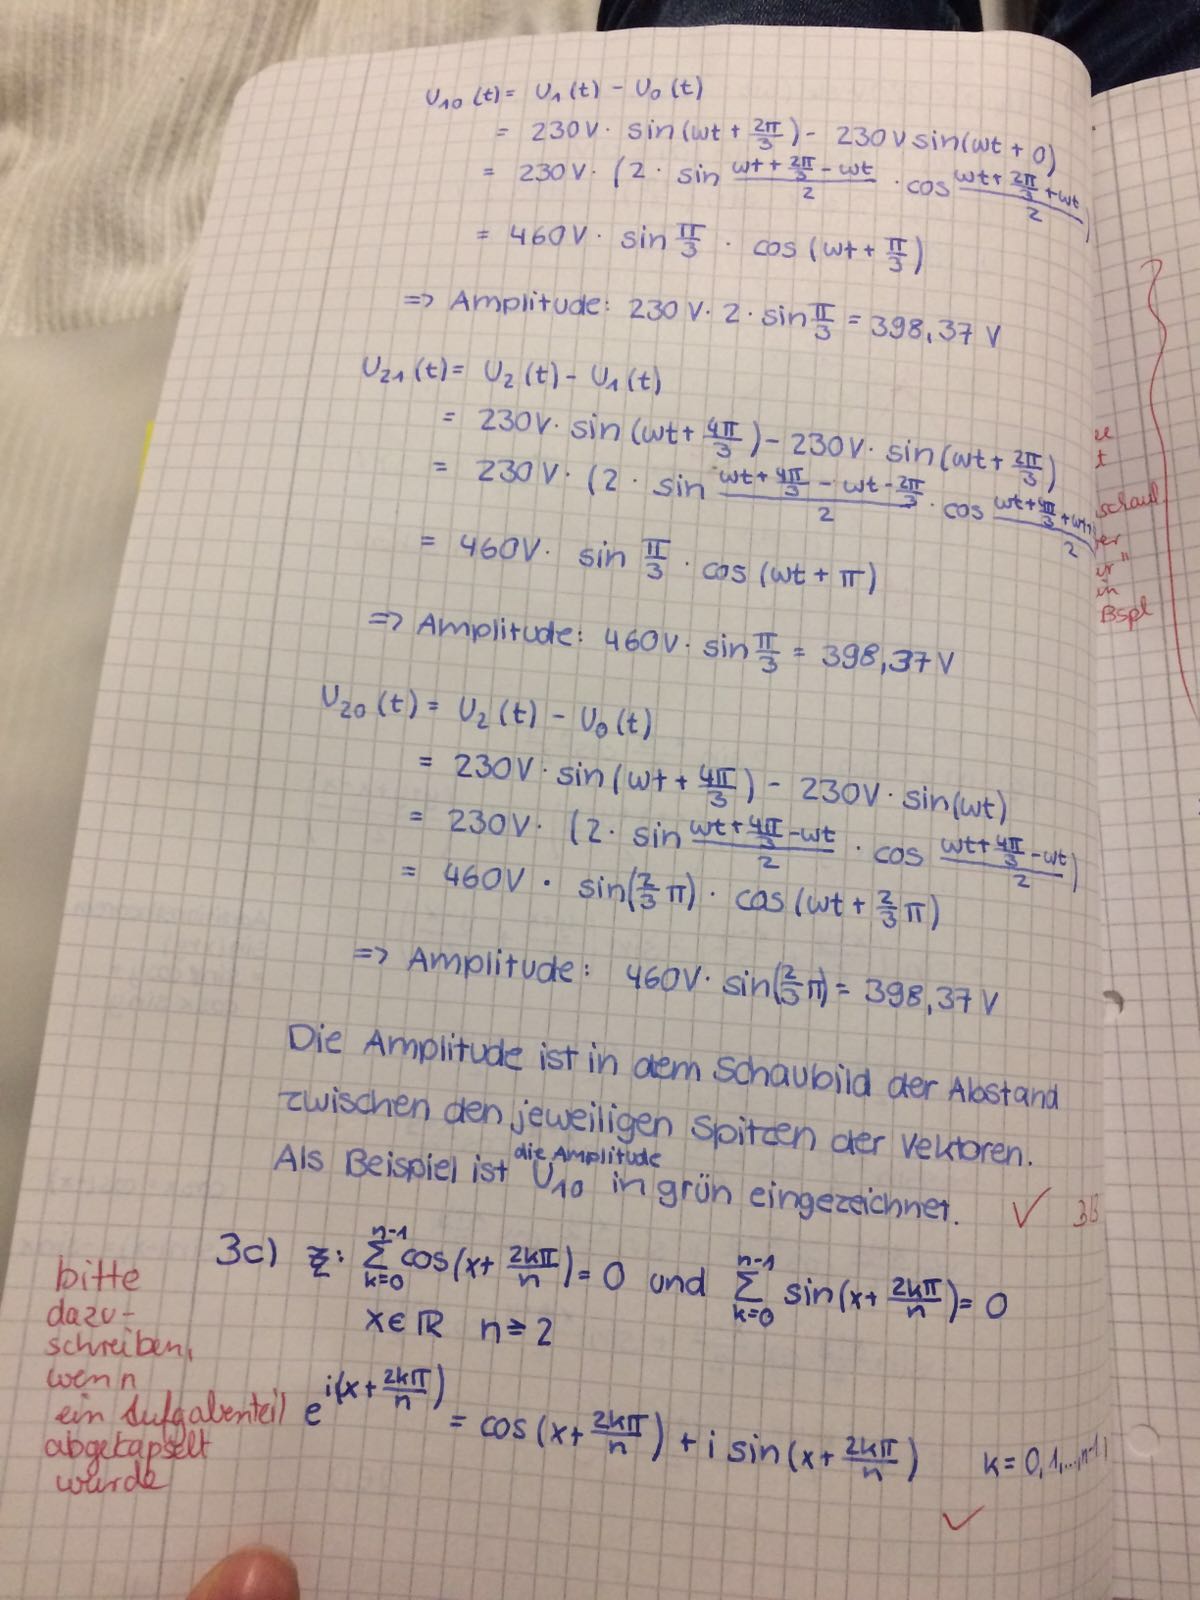 U₁₀(t) = U₁(t) - U₀(t)
= 230V · sin(ωt + 2π/3) - 230V sin(ωt + 0)
= 230V · (2 · sin (ωt + 2π/3 - ωt)/2 · cos (ωt + 2π/3 + ωt)/2)
= 460V · sin π/3 · cos(ωt + π/3)
=> Amplitude: 230V · 2 · sin π/3 = 398,37 V
U₂₁(t) = U₂(t) - U₁(t)
= 230V · sin(ωt + 4π/3) - 230V · sin(ωt + 2π/3)
= 230V · (2 · sin (ωt + 4π/3 - ωt - 2π/3)/2 · cos (ωt + 4π/3 + ωt+)/2
= 460V · sin π/3 · cos(ωt + π)
=> Amplitude: 460V · sin π/3 = 398,37 V
U₂₀(t) = U₂(t) - U₀(t)
= 230V · sin(ωt + 4π/3) - 230V · sin(ωt)
= 230V · (2 · sin (ωt + 4π/3 - ωt)/2 · cos (ωt + 4π/3 - ωt)/2)
= 460V · sin(2/3 π) · cos(ωt + 2/3 π)
=> Amplitude: 460V · sin(2/3 π) = 398,37 V
Die Amplitude ist in dem Schaubild der Abstand
zwischen den jeweiligen Spitzen der Vektoren.
Als Beispiel ist die Amplitude U₁₀ in grün eingezeichnet. ✓ 3B
3c) z: ∑_{k=0}^{n-1} cos(x + 2kπ/n) = 0 und ∑_{k=0}^{n-1} sin(x + 2kπ/n) = 0
x ∈ ℝ n ≥ 2
e^{i(x + 2kπ/n)} = cos(x + 2kπ/n) + i sin(x + 2kπ/n) k = 0, 1, ..., n-1
✓
bitte
dazu-
schreiben,
wenn
ein Aufgabenteil
abgekapselt
wurde
t
schaul
er
in
Bspl